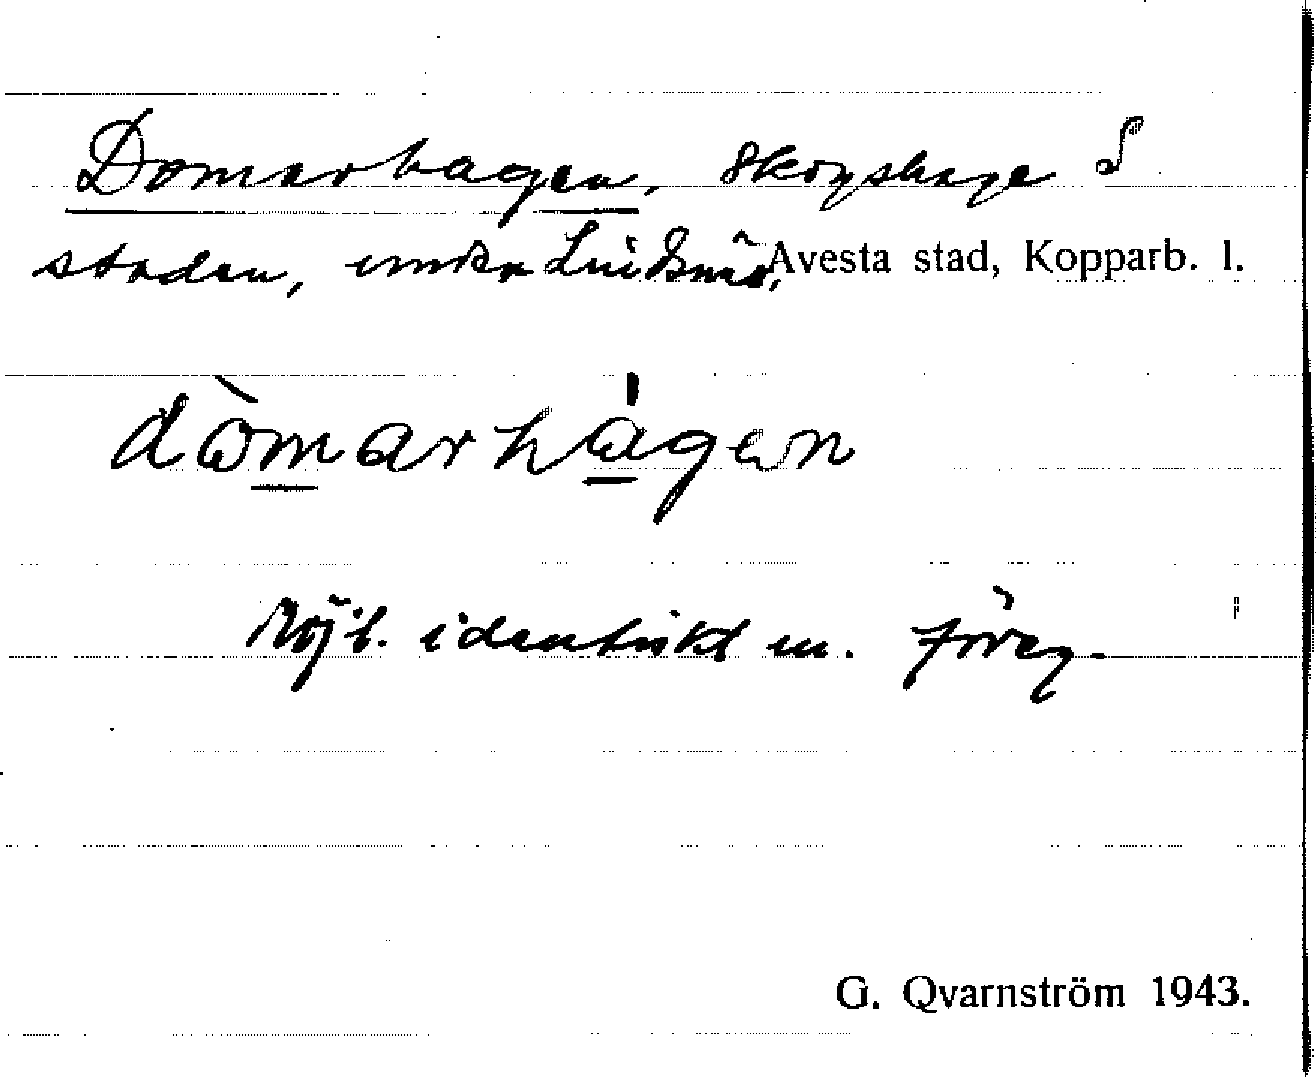 Domarhagen, skogshage S
staden, under Lindsnäs, Avesta stad, Kopparb. l.
dòmarhágen
Möjl. identiskt m. föreg.
G. Qvarnström 1943.